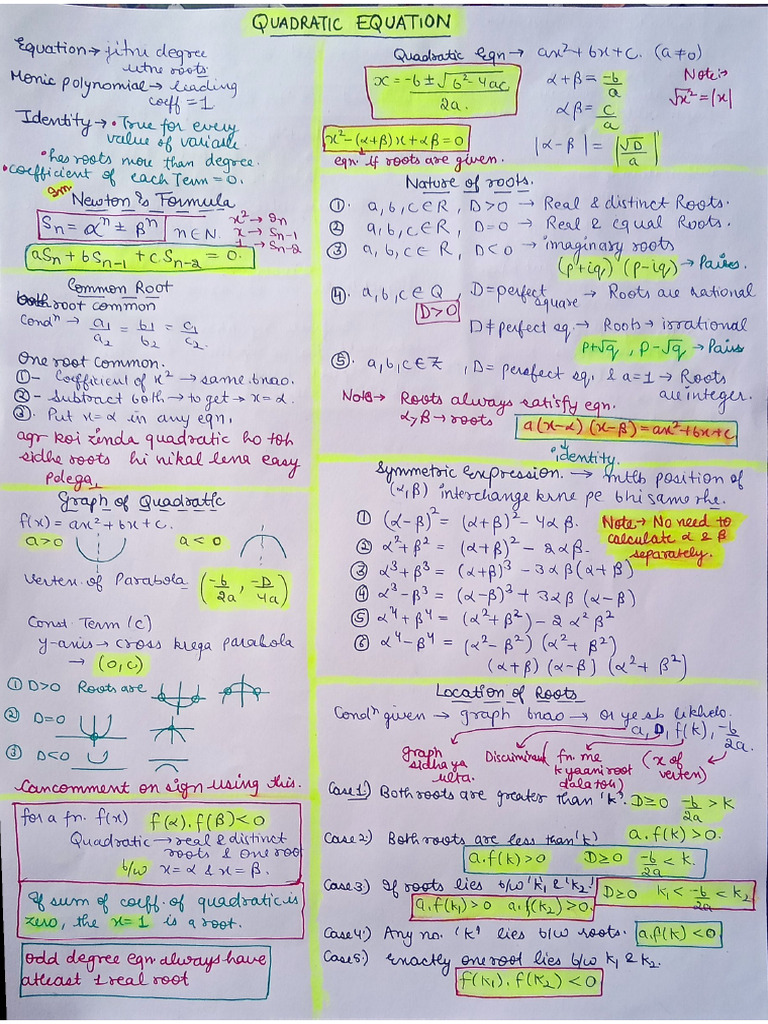 QUADRATIC EQUATION
Equation → jitnu degree
utne roots
Monic polynomial → leading
coeff = 1
Identity → • True for every
value of variable.
• hes roots more than degree.
• coefficient of each Term = 0.
Sm
Newton's Formula
Sn = αⁿ ± βⁿ n∈N.
x² → Sn
x → Sn-1
1 → Sn-2
aSn + bSn-1 + cSn-2 = 0.
Common Root
both root common
Condⁿ → a1/a2 = b1/b2 = c1/c2.
One root common.
① - Coefficient of x² → same bnao.
② - Subtract both → to get → x = α.
③. Put x = α in any eqn.
agr koi zinda quadratic ho toh
sidhe roots hi nikal lena easy
Padega.
Graph of Quadratic
f(x) = ax² + bx + c.
a>0 a<0
Vertex of Parabola (-b/2a, -D/4a)
Const. Term (c)
y-axis → cross krega parabola
→ (0,c)
① D>0 Roots are
② D=0
③ D<0
Can comment on sign using this.
for a fn. f(x) f(α).f(β)<0
Quadratic → real & distinct
roots & one root
b/w x=α & x=β.
If sum of coeff. of quadratic is
zero, the x=1 is a root.
odd degree eqn always have
atleast 1 real root
Quadratic Eqn → ax² + bx + c. (a≠0)
x = -b ± √b² - 4ac / 2a.
α+β = -b/a
αβ = c/a
|α-β| = |√D/a|
Note:→
√x² = |x|
x² - (α+β)x + αβ = 0
eqn. if roots are given.
Nature of roots.
①. a, b, c ∈ R, D>0 → Real & distinct Roots.
② a, b, c ∈ R, D=0 → Real & equal Roots.
③ a, b, c ∈ R, D<0 → imaginary roots
(p+iq) (p-iq) → Pairs.
④. a, b, c ∈ Q, D = perfect square → Roots are rational
D>0
D ≠ perfect sq. → Roots → irrational
p+√q, p-√q → Pairs
⑤. a, b, c ∈ Z, D = perefect sq. & a=1 → Roots
are integer.
Note → Roots always satisfy eqn.
α, β → roots a(x-α)(x-β) = ax²+bx+c
identity.
Symmetric Expression. → mtlb position of
(α,β) interchange krne pe bhi same rhe.
① (α-β)² = (α+β)² - 4αβ.
② α²+β² = (α+β)² - 2αβ.
③ α³+β³ = (α+β)³ - 3αβ(α+β)
④ α³-β³ = (α-β)³ + 3αβ (α-β)
⑤ α⁴+β⁴ = (α²+β²) - 2α²β²
⑥ α⁴-β⁴ = (α²-β²) (α²+β²)
(α+β) (α-β) (α²+β²)
Note → No need to
calculate α & β
separately.
Location of Roots
Condⁿ given → graph bnao → or ye sb likhelo.
a, D, f(k), -b/2a.
graph
sidha ya
ulta.
Discriminant
fn. me
k yaani root
dala to
(x of
vertex)
Case 1) Both roots are greater than 'k'. D≥0 -b/2a > K
a.f(k)>0.
Case 2) Both roots are less than 'k'
a.f(k)>0 D≥0 -b/2a < k.
Case 3:) If roots lies b/w 'k1 & 'k2.' D≥0 k1 < -b/2a < k2
a.f(k1)>0 a.f(k2)>0.
Case 4:) Any no. 'k' lies b/w roots. a.f(k)<0
Case 5:) Exactly one root lies b/w k1 & k2.
f(k1).f(k2)<0